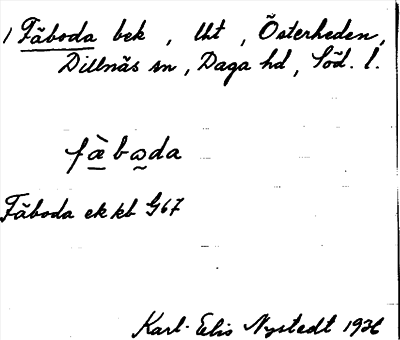 1 Fäboda bek, lht, Österheden,
Dillnäs sn, Daga hd, Söd. l.
fæ̀bωda
Fäboda ek kb G67
Karl-Elis Nystedt 1936